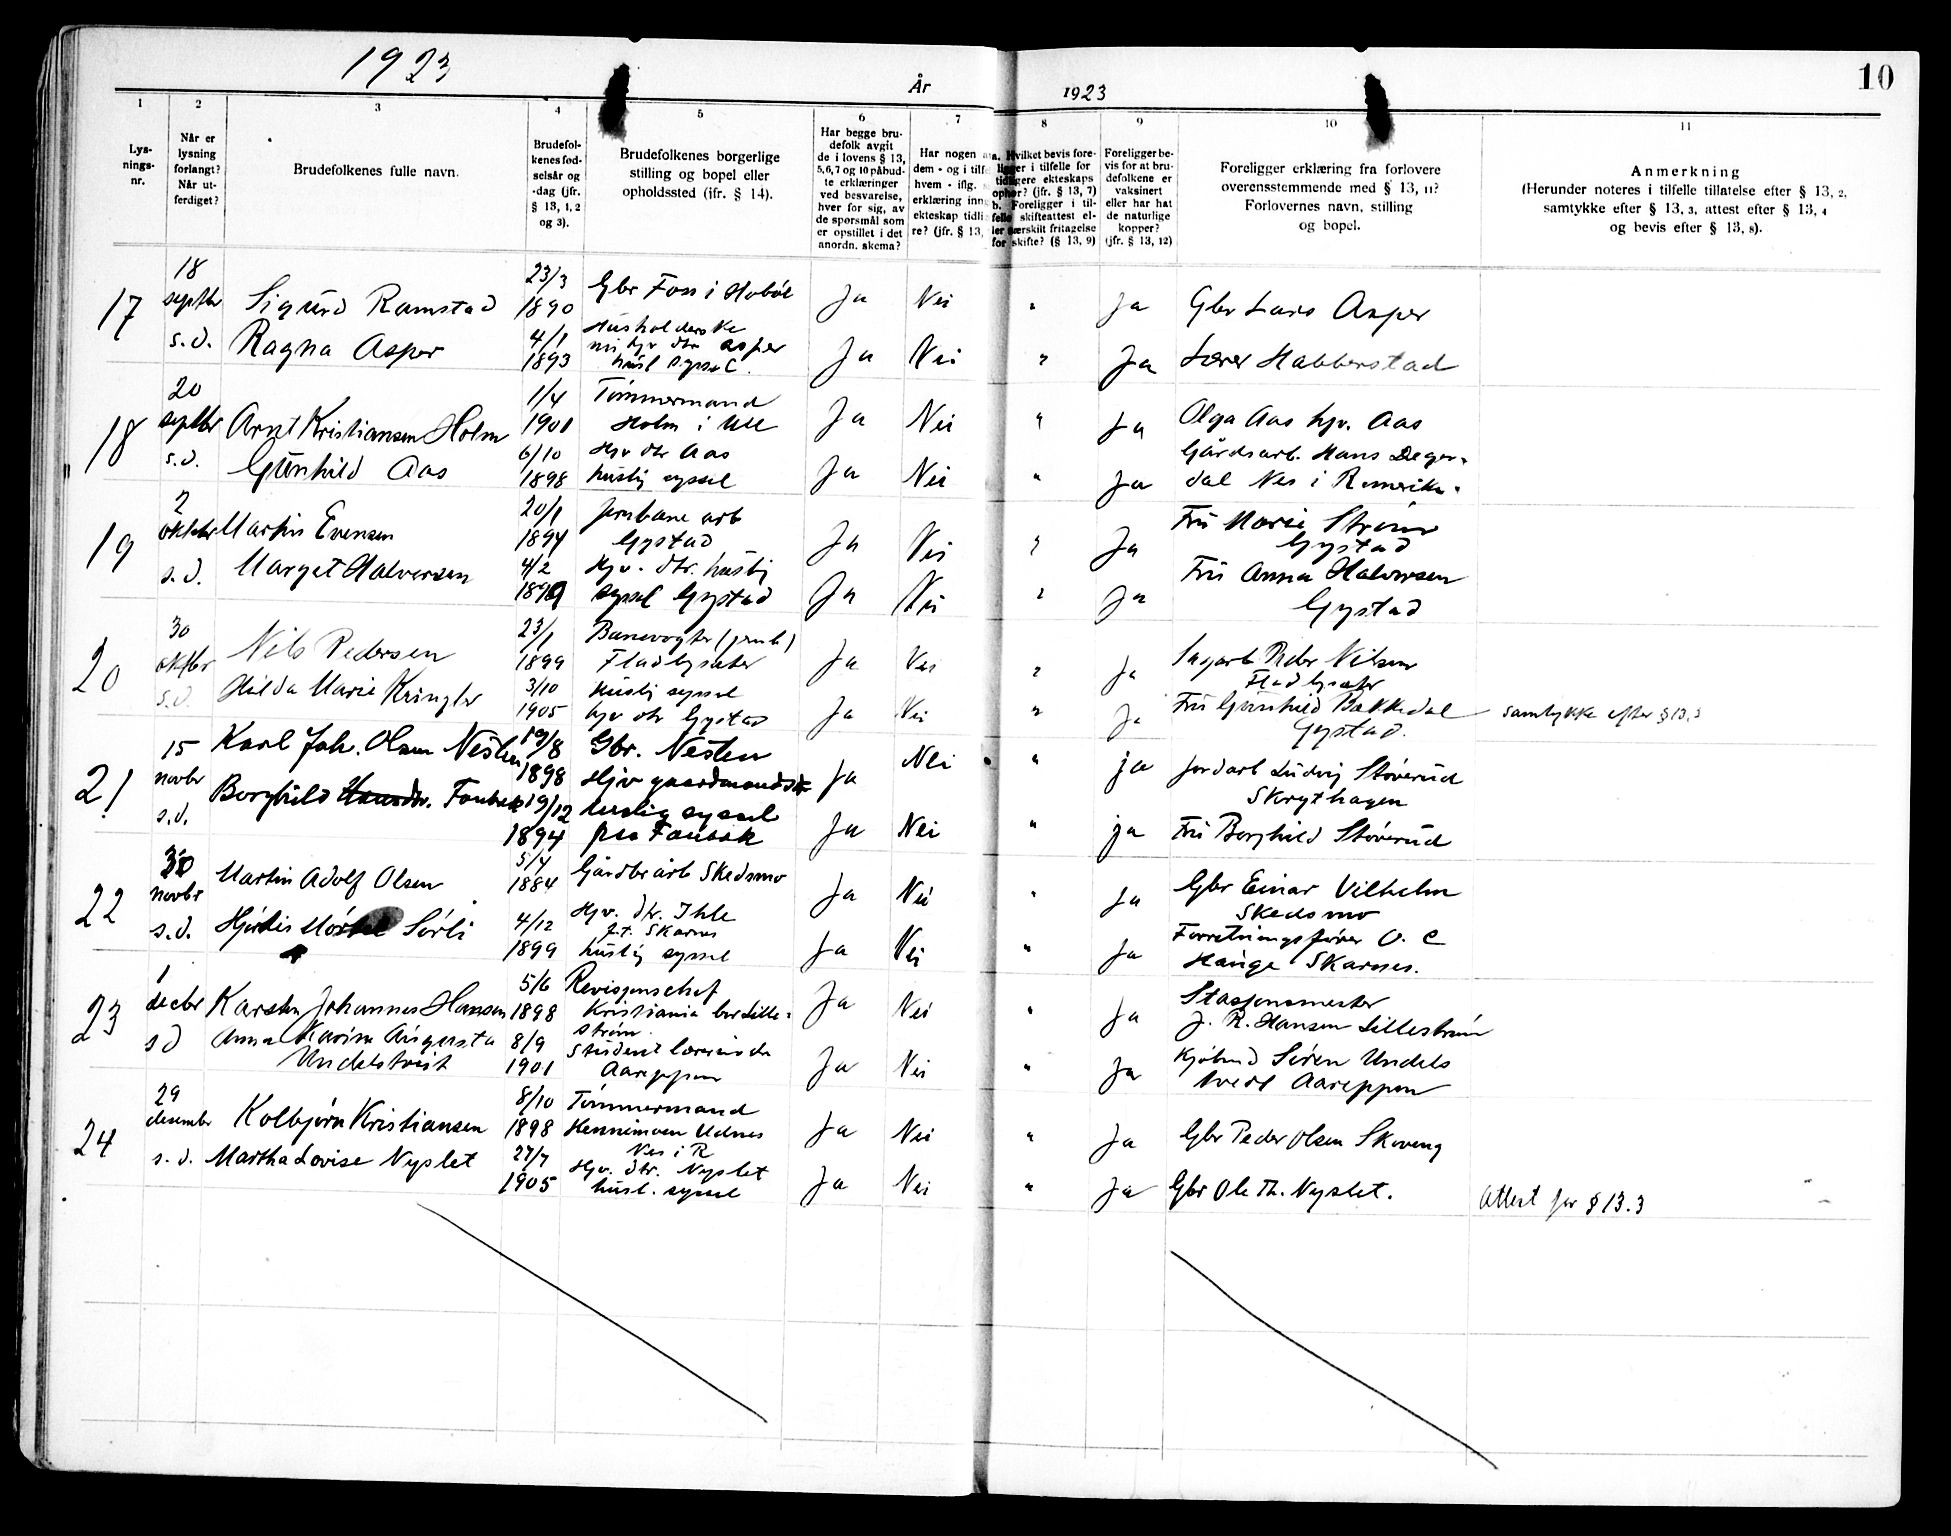 1923
År 1923
10
1 2 3 4 5 6 7 8 9 10 11
Lys-
nings-
nr.
Når er
lysning
forlangt?
Når ut-
ferdiget?
Brudefolkenes fulle navn.
Brudefol-
kenes fød-
selsår og
-dag (jfr.
§ 13, 1, 2
og 3).
Brudefolkenes borgerlige
stilling og bopel eller
opholdssted (ifr. § 14).
Har begge bru-
defolk avgit
de i lovens § 13,
5,6,7 og 10 påbud-
te erklæringer
ved besvarelse,
hver for sig, av
de spørsmål som
er opstillet i det
anordn. skema?
Har nogen a
dem - og i tilf
hvem - iflg.
erklæring inn
ekteskap tidli
re? (jfr. § 13,
a. Hvilket bevis fore-
ligger i tilfelle for
tidligere ekteskaps
ophør? (jfr. § 13, 7)
b. Foreligger i til-
felle skifteattest el-
ler særskilt fritagelse
for skifte? (§ 13, 9)
Foreligger be-
vis for at bru-
defolkene er
vaksinert
eller har hat
de naturlige
kopper?
(jfr. § 13, 12)
Foreligger erklæring fra forlovere
overensstemmende med § 13, 11?
Forlovernes navn, stilling
og bopel.
Anmerkning
(Herunder noteres i tilfelle tillatelse efter § 13, 2,
samtykke efter § 13, 3, attest efter § 13, 4
og bevis efter § 13, 8).
17
18
septbr
s.d.
Sigurd Ramstad
Ragna Asper
23/3
1890
4/1
1893
Gbr Foss i Hobøl
Husholderske
hjv dtr Asper
husl syssel
Ja Nei " Ja Gbr Lars Asper
Ja Nei " Ja Lærer Habberstad
18
20
septbr
s.d.
Arnt Kristiansen Holm
Gunhild Aas
1/4
1901
6/10
1898
Tømmermand
Holm i Ull
Hjv dtr Aas
huslig syssel
Ja Nei " Ja Olga Aas hjv. Aas
Ja Nei " Ja Gårdsarb. Hans Deger-
dal Nes i Romerike.
19
2
oktbr
s.d.
Martin Evensen
Marget Halvorsen
20/1
1894
4/2
1899
Jernbane arb
Gystad
Hjv. dtr. huslig
syssel Gystad
Ja Nei " Ja Fru Marie Strøm
Gystad
Ja Nei " Ja Fru Anna Halvorsen
Gystad
20
30
oktbr
s.d.
Nils Pedersen
Hilda Marie Kringler
23/1
1899
3/10
1905
Banevogter (jernb)
Fladbysæter
Huslig syssel
hjv dtr Gystad
Ja Nei " Ja Sagarb Peder Nilsen
Fladbysæter
Ja Nei " Ja Fru Gunhild Bakkedal
Gystad.
samtykke efter § 13.3
21
15
novbr
s.d.
Karl Joh. Olsen Nesten
Borghild Hansdtr. Fonbæk
19/8
1898
19/12
1894
Gbr. Nesten
Hjv gaardmandsdtr
huslig syssel
paa Fonbæk
Ja Nei " ja Jordarb Ludvig Støverud
Skrythagen
Ja Nei " ja Fru Borghild Støverud
22
30
novbr
s.d.
Martin Adolf Olsen
Hjørdis Sørli
5/4
1884
4/12
1899
Gårdbr arb Skedsmo
Hjv. dtr. Ihle
f.t. Skarnes
huslig syssel
Ja Nei " Ja Gbr Einar Vilhelm
Skedsmo
Ja Nei " Ja Forretningsfører O. C
Hauge Skarnes.
23
1
decbr
s d
Karsten Johannes Hansen
Anna Karine Augusta
Undelstveit
5/6
1898
8/9
1901
Revisjonschef
Kristiania bor Lille-
strøm
Student lærerinde
Aareppen
Ja Nei " Ja Stasjonsmester
J. R. Hansen Lillestrøm
Ja Nei " Ja Kjøbmd Søren Undels
tvedt Aareppen
24
29
desember
s.d.
Kolbjørn Kristiansen
Martha Lovise Nyslet
8/10
1898
27/7
1905
Tømmermand
Hennimoen Udnes
Nes i R
Hjv. dtr. Nyslet
husl. syssel
Ja Nei " Ja Gbr Peder Olsen Skoveng
Ja Nei " Ja Gbr Ole Th. Nyslet.
Attest for § 13.3